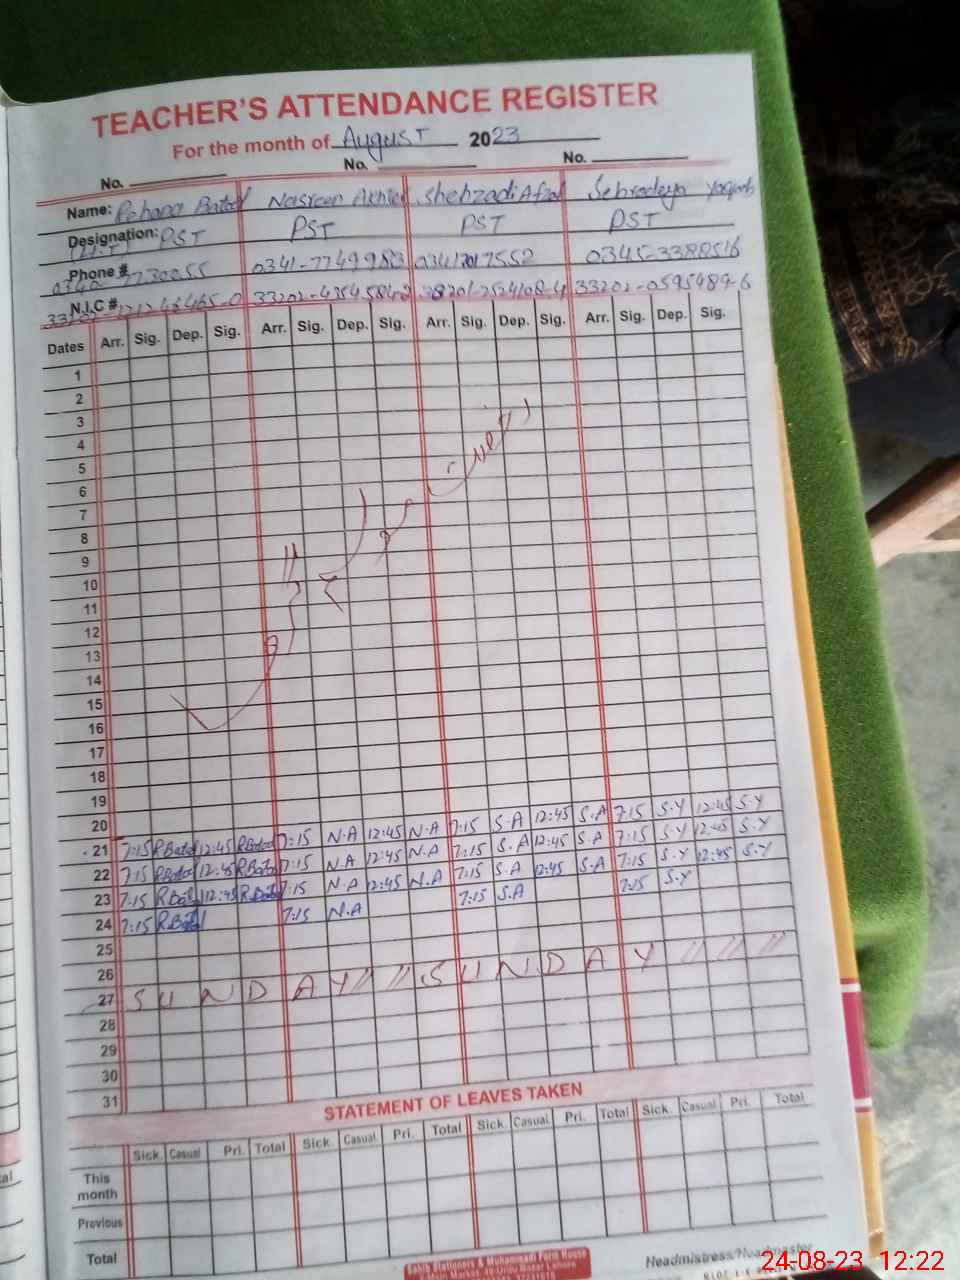 TEACHER'S ATTENDANCE REGISTER
For the month of August 2023
No. No. No.
Name: Rehana Batool Nasreen Akhter Shehzadi Afzal Sehredeya Yaqoob
Designation: PST PST PST PST
Phone # 0341-7749983 03417017552 0345-3388516
N.I.C # 33202-0595489-6
Dates Arr. Sig. Dep. Sig. Arr. Sig. Dep. Sig. Arr. Sig. Dep. Sig. Arr. Sig. Dep. Sig.
1
2
3
4
5
6
7
8
9
10
11
12
13
14
15
16
17
18
19
20
21 7:15 RBatool 12:45 RBatool 7:15 N.A 12:45 N.A 7:15 S.A 12:45 S.A 7:15 S.Y 12:45 S.Y
22 7:15 RBatool 12:45 RBatool 7:15 N.A 12:45 N.A 7:15 S.A 12:45 S.A 7:15 S.Y 12:45 S.Y
23 7:15 RBatool 12:45 RBatool 7:15 N.A 12:45 N.A 7:15 S.A 12:45 S.A 7:15 S.Y 12:45 S.Y
24 7:15 RBatool 7:15 N.A 7:15 S.A 7:15 S.Y
25
26
27 SUNDAY // // SUNDAY // // //
28
29
30
31
STATEMENT OF LEAVES TAKEN
Sick. Casual Pri. Total Sick. Casual Pri. Total Sick. Casual Pri. Total Sick. Casual Pri. Total
This month
Previous
Total
Sahib Stationers & Muhammadi Form House
Headmistress/Headmaster
24-08-23 12:22